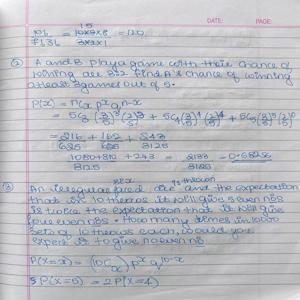 15
10! = 10×9×8 = 120
7!3! 3×2×1
DATE: PAGE:
② A and B play a game with their chance of
winning are 3:2 find A's chance of winning
atleast 3 games out of 5.
P(x) = nCx px qn-x
= 5C3 (3/5)3 (2/5)2 + 5C4 (3/5)4 (2/5)1 + 5C5 (3/5)5 (2/5)0
= 216 + 162 + 243
625 625 3125
1080+810+243 = 2133 = 0.68256
3125 3125
③ An irregular faced dice and the expectation
that in 10 throws it will give 5 even nos
is twice the expectation that it will give
four even nos. How many times in 10000
sets of 10 throws each, would you
expect it to give no even no
P(X=x) = (10Cx) px q10-x
P(X=5) = 2P(X=4)